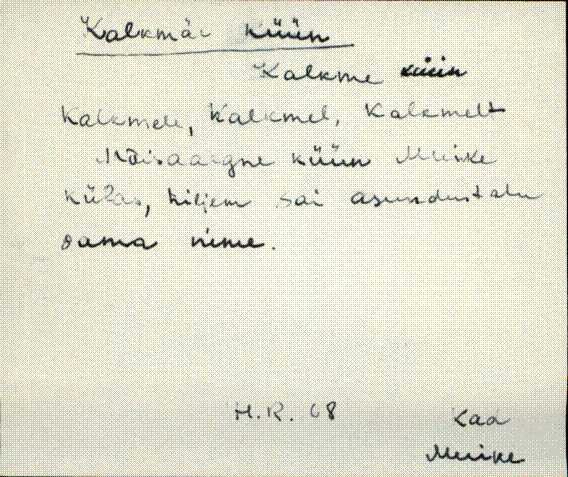 Kalkmäe küün
Kalkme küün
Kalkmele, Kalkmel, Kalkmelt
Mõisaaegne küün Muike
külas, hiljem sai asundustalu
sama nime.
H.R. 68
Kaa
Muike